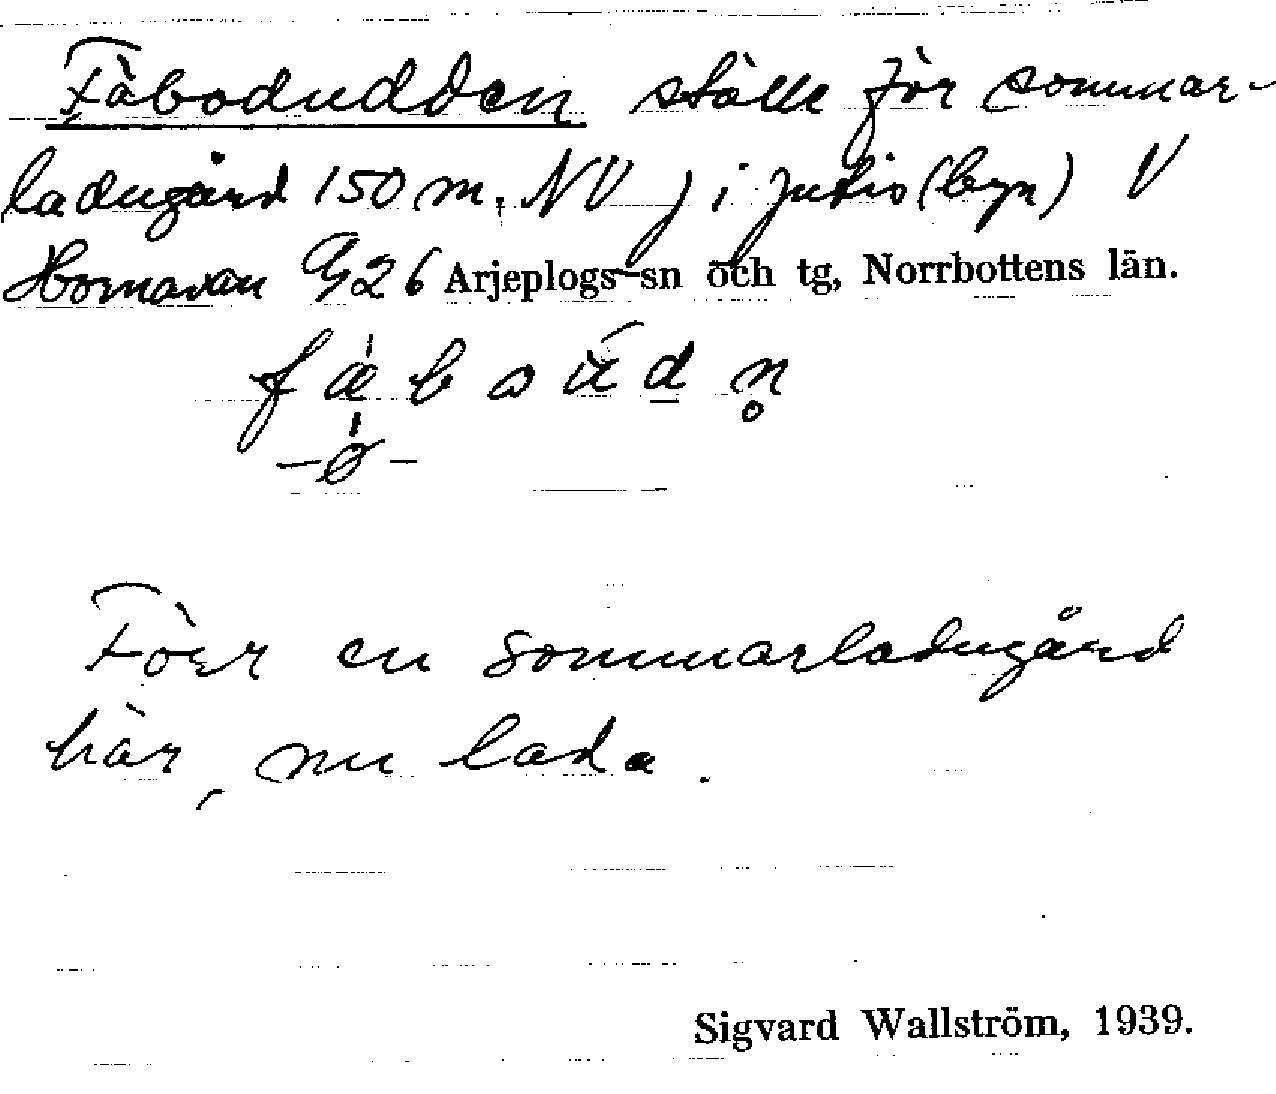 Fäbodudden ställe för sommar-
ladugård 150 m. NV j i Jutis (byn) V
Hornavan G26 Arjeplogs sn och tg, Norrbottens län.
f æ̀ b o ú d n̥
–ø̀–
Förr en sommarladugård
här, nu lada.
Sigvard Wallström, 1939.